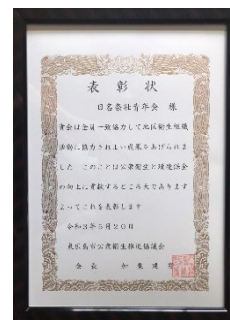 表彰状
日名奈社青年会 様
貴会は全員一致協力して地区衛生組織
活動に協力されよい成果をあげられま
した このことは公衆衛生と環境保全
の向上に貢献するところ大であります
よってこれを表彰します
令和3年5月20日
東広島市公衆衛生推進協議会
会長